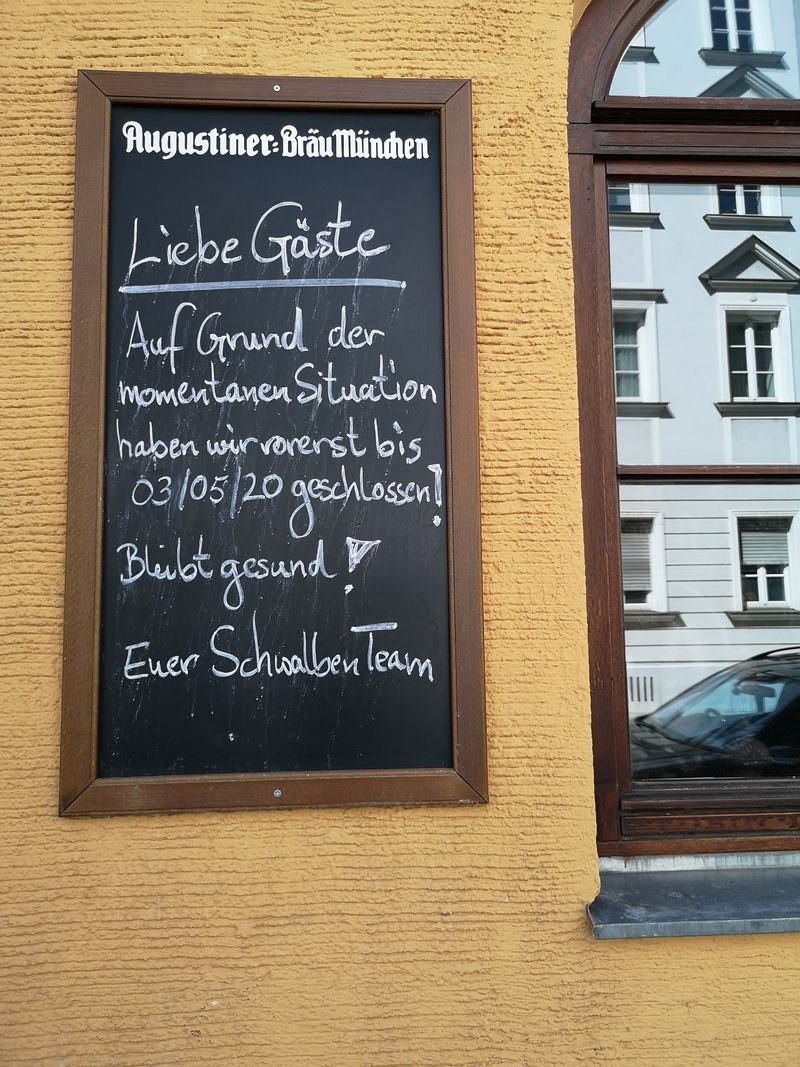 Augustiner-Bräu München
Liebe Gäste
Auf Grund der
momentanen Situation
haben wir vorerst bis
03/05/20 geschlossen!
Bleibt gesund!
Euer Schwalben Team